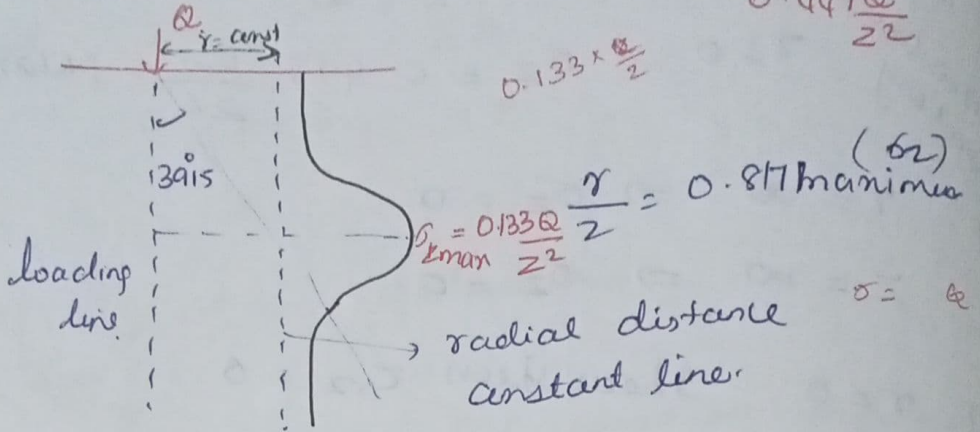 Q
r = const
0.133 × Q/2
Q/z²
39°15
(σz)
r/z = 0.817 maximum
σzmax = 0.133Q/z²
loading
line
σ = Q
radial distance
constant line.